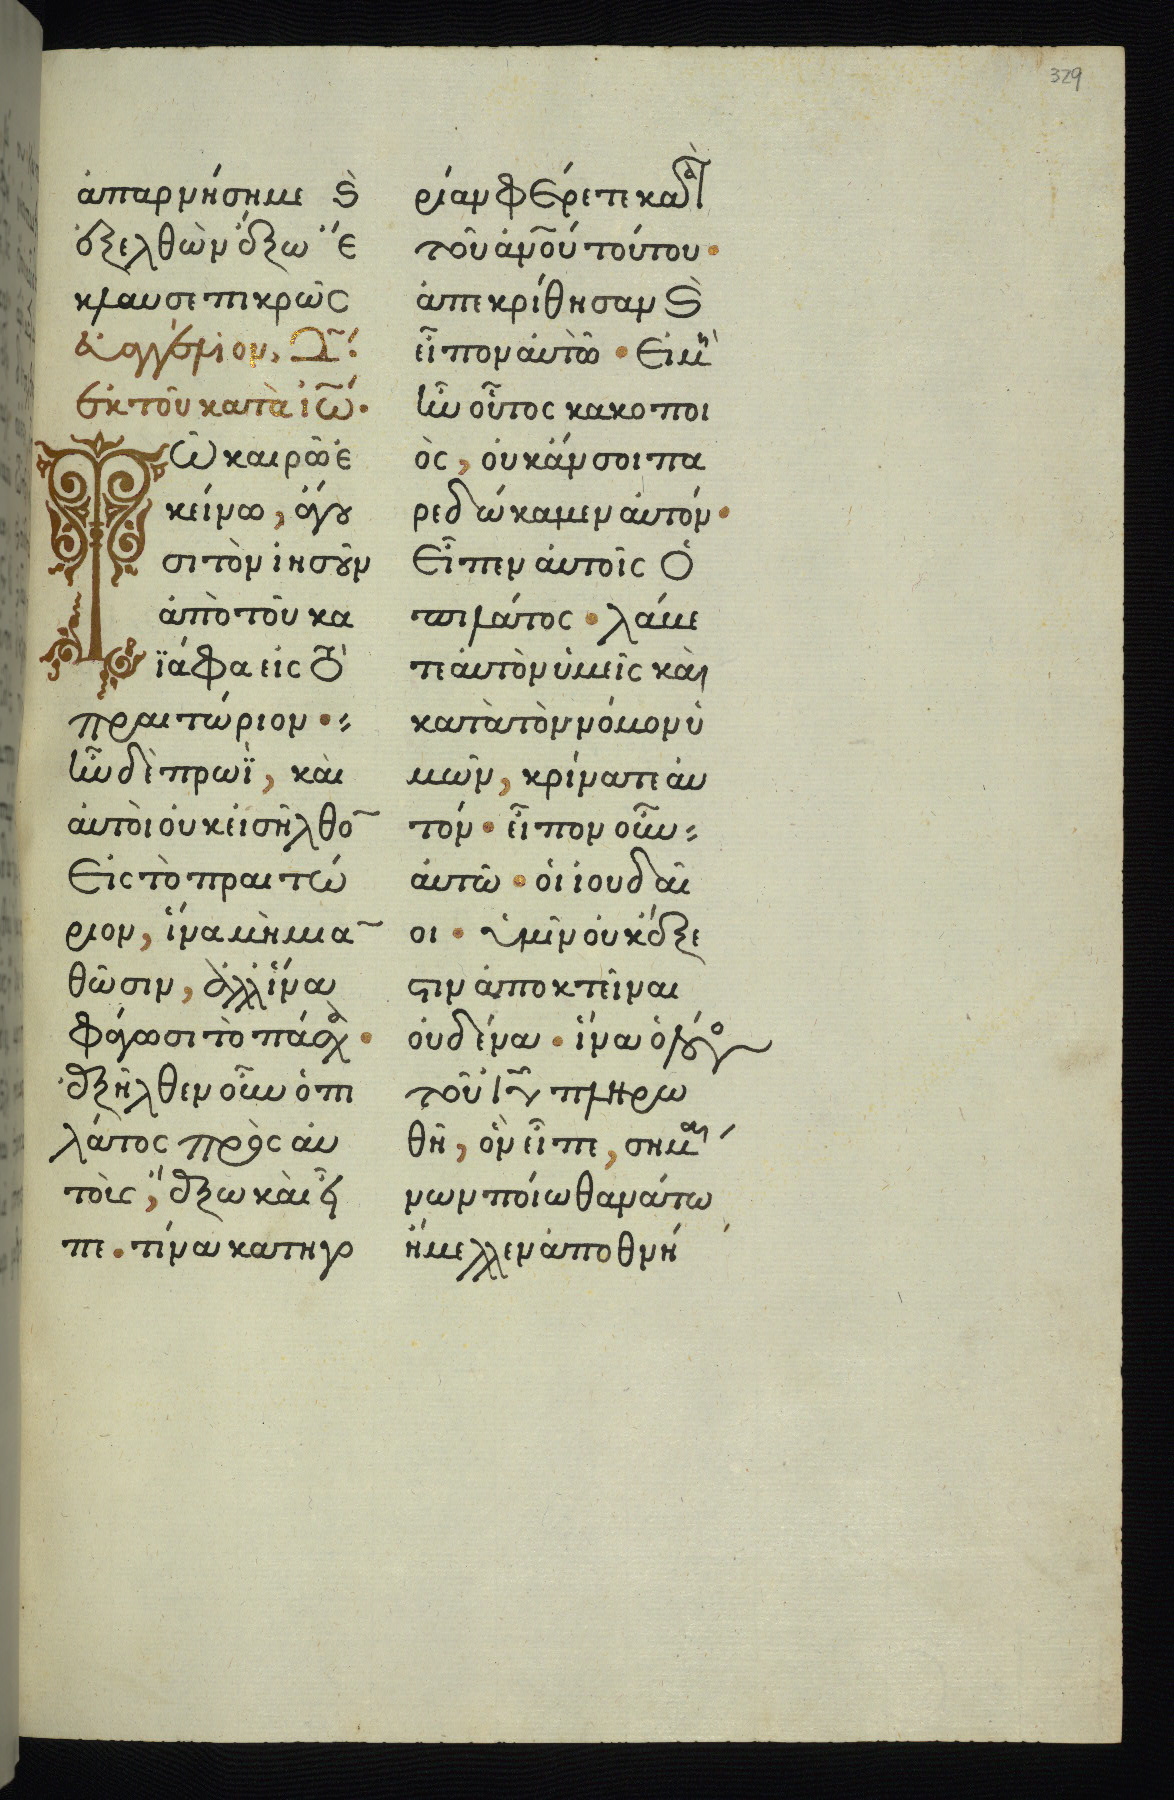 329
ἀπαρνήσημε ϗ̀
ἐξελθὼν ἔξω ἔ
κλαυσε πικρῶς
ἐκ τοῦ κατὰ ἰω̅.
Τῶ καιρῶ ἐ
κείνω, ἄγου
σι τὸν ἰησοῦν
ἀπὸ τοῦ κα
ϊάφα εἰς τὸ
πραιτώριον.
ἦν δὲ πρωΐ, καὶ
αὐτοὶ οὐκ εἰσῆλθο̅
εἰς τὸ πραιτώ
ριον, ἵνα μὴ μια̅
θῶσιν, ἀλλ' ἵνα
φάγωσι τὸ πάσχα.
ἐξῆλθεν οὖν ὁ πι
λάτος πρὸς αὐ
τοὺς, ἔξω καὶ εἶ
πε. τίνα κατηγο
ρίαν φέρετε κατὰ
τοῦ ἀνο̅υ τούτου.
ἀπεκρίθησαν ϗ̀
εἶπον αὐτῶ. Εἰ μὴ
ἦν οὗτος κακοποι
ὸς, οὐκ ἄν σοι πα
ρεδώκαμεν αὐτόν.
Εἶπεν αὐτοῖς ὁ
πιλάτος. λάβε
τε αὐτὸν ὑμεῖς καὶ
κατὰ τὸν νόμον ὑ
μῶν, κρίνατε αὐ
τόν. εἶπον οὖν
αὐτῶ. οἱ ἰουδαῖ
οι. ἡμῖν οὐκ ἔξε
στιν ἀποκτεῖναι
οὐδένα. ἵνα ὁ λόγος
τοῦ ιυ̅ πληρω
θῆ, ὃν εἶπε, σημαί
νων ποίω θανάτω
ἤμελλεν ἀποθνή